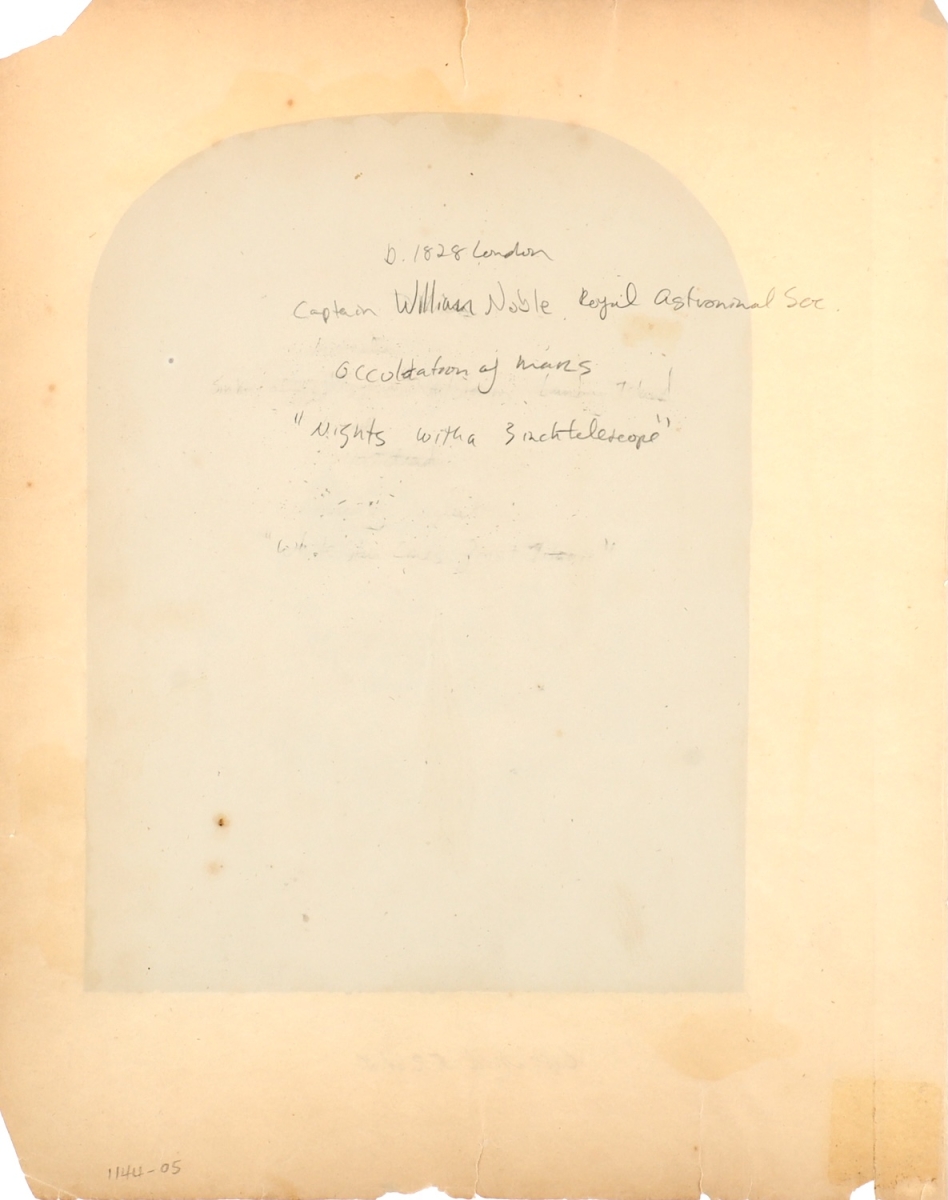 b. 1828 London
Captain William Noble Royal Astronimal Soc.
Occuldation of Mars
"Nights with a 3 inch telescope"
1144-05